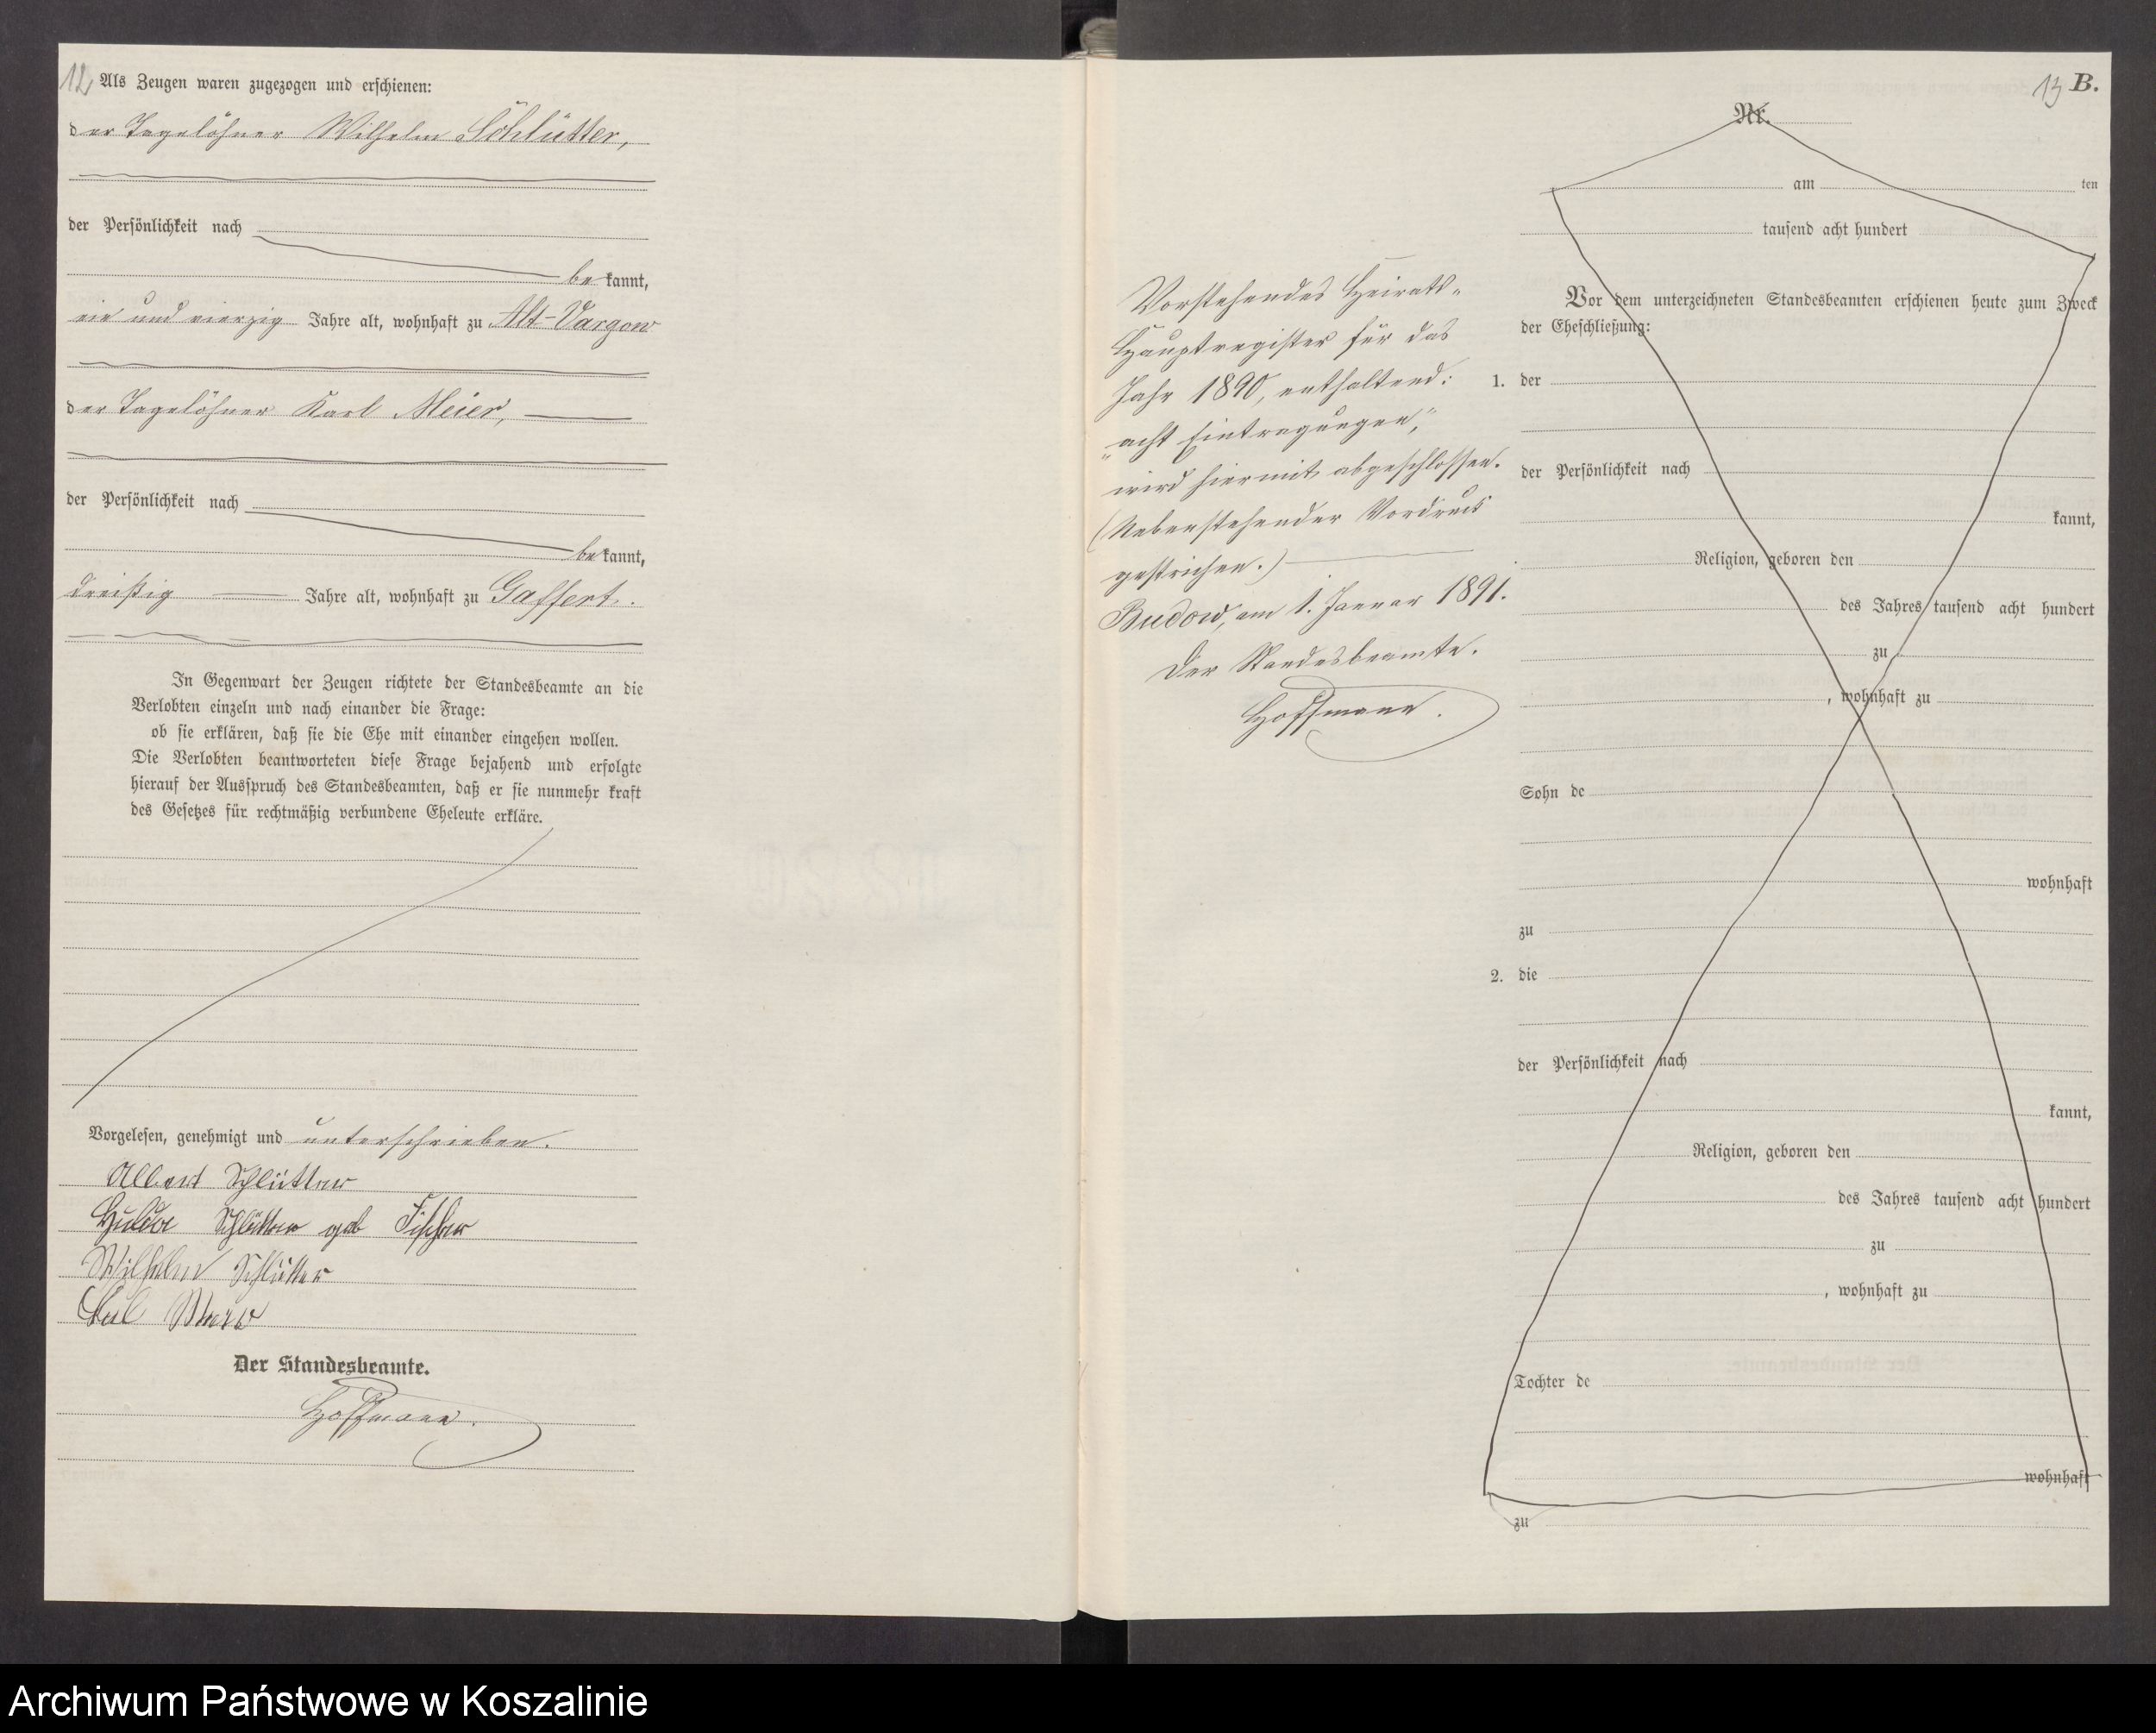 12
Als Zeugen waren zugezogen und erschienen:
der Tagelöhner Wilhelm Schlütter,
der Persönlichkeit nach
be kannt,
ein und vierzig Jahre alt, wohnhaft zu Alt-Vargow
der Tagelöhner Karl Meier,
der Persönlichkeit nach
be kannt,
dreißig Jahre alt, wohnhaft zu Gaffert.
In Gegenwart der Zeugen richtete der Standesbeamte an die
Verlobten einzeln und nach einander die Frage:
ob sie erklären, daß sie die Ehe mit einander eingehen wollen.
Die Verlobten beantworteten diese Frage bejahend und erfolgte
hierauf der Ausspruch des Standesbeamten, daß er sie nunmehr kraft
des Gesetzes für rechtmäßig verbundene Eheleute erkläre.
Vorgelesen, genehmigt und unterschrieben.
Albert Schlütter
Hulda Schlütter geb Fischer
Wilhelm Schlütter
Karl Meier
Der Standesbeamte.
Hoffmann.
Vorstehendes Heirats-
Hauptregister für das
Jahr 1890, enthaltend:
„acht Eintragungen“,
wird hiermit abgeschlossen.
(Nebenstehender Vordruck
gestrichen.)
Budow, am 1. Januar 1891.
Der Standesbeamte.
Hoffmann.
13 B.
Nr.
am ten
tausend acht hundert
Vor dem unterzeichneten Standesbeamten erschienen heute zum Zweck
der Eheschließung:
1. der
der Persönlichkeit nach
kannt,
Religion, geboren den
des Jahres tausend acht hundert
zu
, wohnhaft zu
Sohn de
wohnhaft
zu
2. die
der Persönlichkeit nach
kannt,
Religion, geboren den
des Jahres tausend acht hundert
zu
, wohnhaft zu
Tochter de
wohnhaft
zu
Archiwum Państwowe w Koszalinie